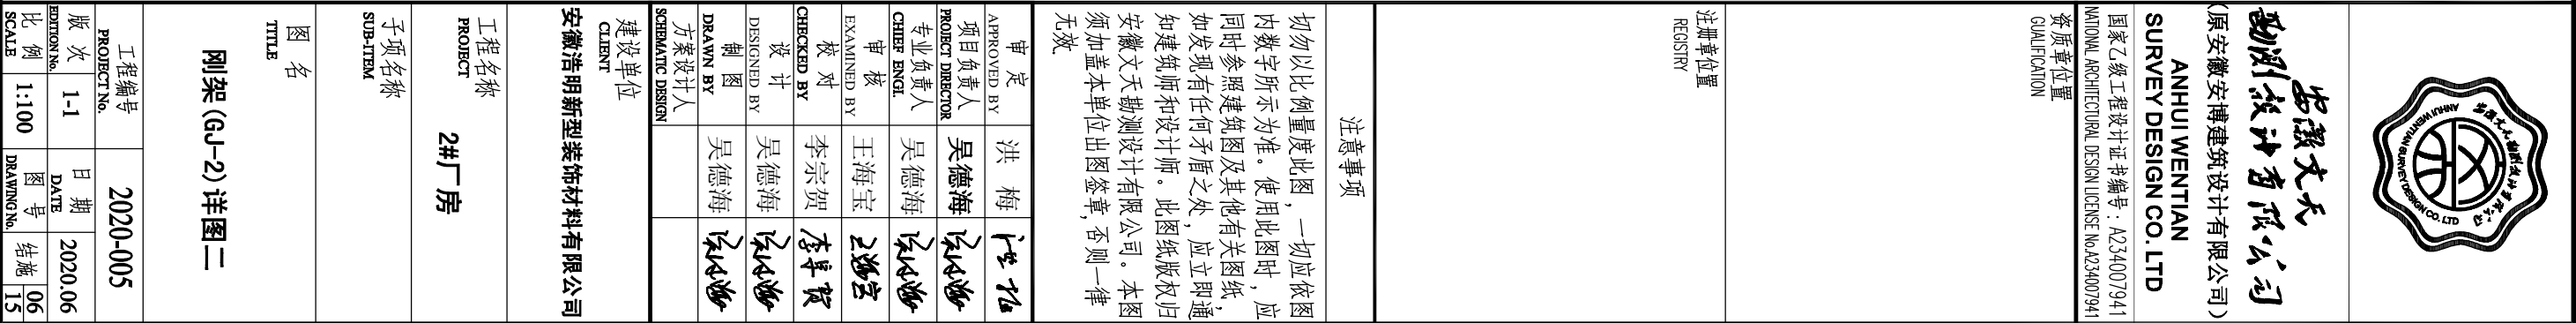 安徽文天勘测设计有限公司
ANHUI WENTIAN SURVEY DESIGN CO. LTD
安徽文天
勘测设计有限公司
(原安徽安博建筑设计有限公司)
ANHUI WENTIAN
SURVEY DESIGN CO. LTD
国家乙级工程设计证书编号：A234007941
NATIONAL ARCHITECTURAL DESIGN LICENSE No.A234007941
资质章位置
QUALIFICATION
注册章位置
REGISTRY
注意事项
切勿以比例量度此图，一切应依图
内数字所示为准。使用此图时，应
同时参照建筑图及其他有关图纸，
如发现有任何矛盾之处，应立即通
知建筑师和设计师。此图纸版权归
安徽文天勘测设计有限公司。本图
须加盖本单位出图签章，否则一律
无效
审 定 洪 梅
APPROVED BY
项目负责人 吴德海
PROJECT DIRECTOR
专业负责人 吴德海
CHIEF ENGI.
审 核 王海宝
EXAMINED BY
校 对 李宗贺
CHECKED BY
设 计 吴德海
DESIGNED BY
制 图 吴德海
DRAWN BY
方案设计人
SCHEMATIC DESIGN
建设单位
CLIENT
安徽浩明新型装饰材料有限公司
工程名称
PROJECT
2#厂房
子项名称
SUB-ITEM
图 名
TITLE
刚架(GJ-2)详图二
工程编号 2020-005
PROJECT No.
版 次 1-1 日 期 2020.06
EDITION No. DATE
比 例 1:100 图 号 结施 06 15
SCALE DRAWING No.